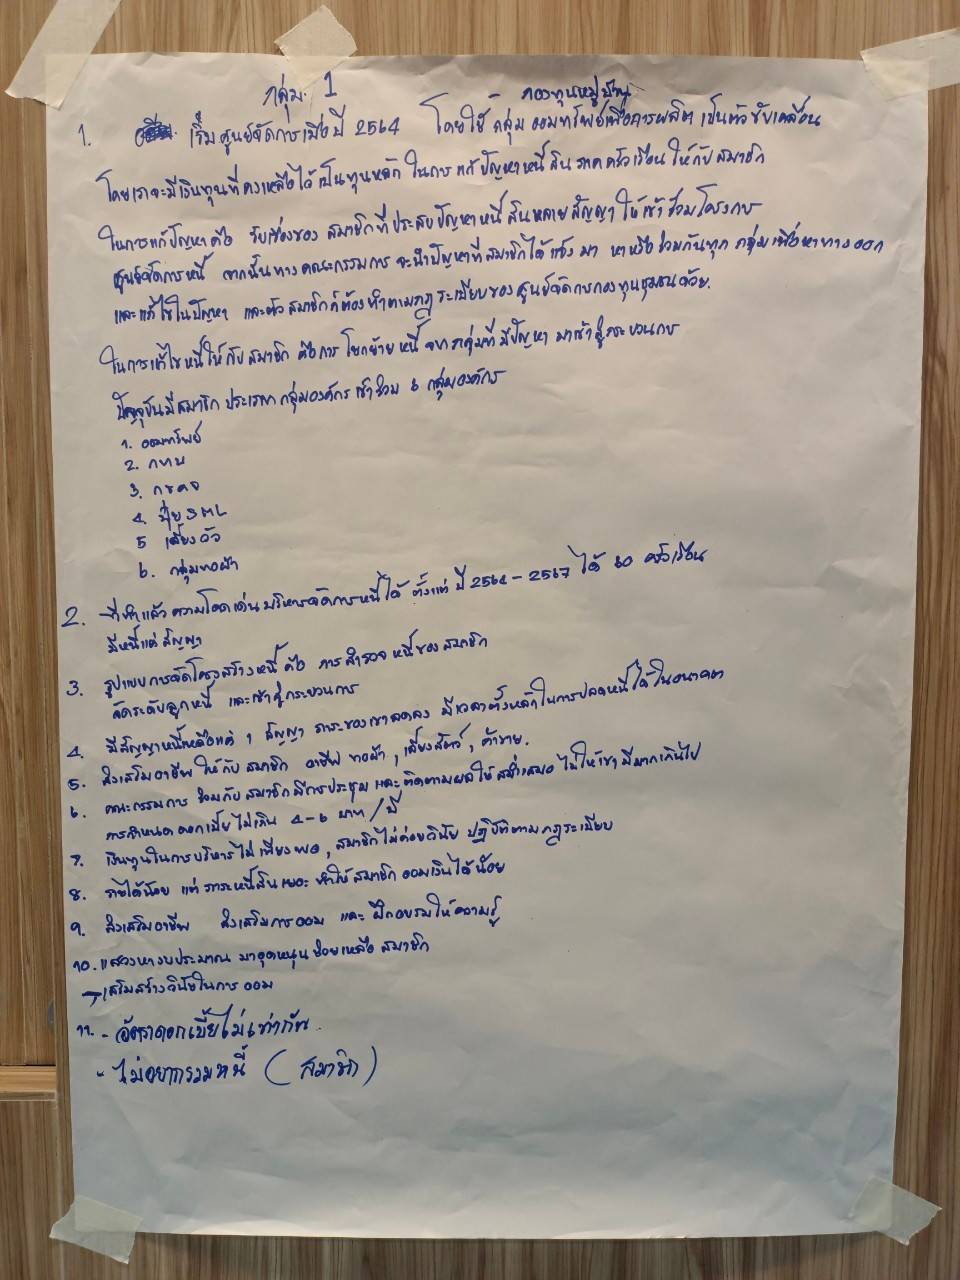 กลุ่ม 1
กองทุนหมู่บ้าน
1. เริ่มศูนย์จัดการเมื่อปี 2564 โดยใช้ กลุ่มออมทรัพย์เพื่อการผลิต เป็นตัวขับเคลื่อน
โดยเราจะมีเงินทุนที่คงเหลือไว้เป็นทุนหลัก ในการแก้ปัญหาหนี้สินภาคครัวเรือนให้กับสมาชิก
ในการแก้ปัญหาคือ รับเรื่องของ สมาชิกที่ประสบปัญหาหนี้สินหลายสัญญา ให้เข้าร่วมโครงการ
ศูนย์จัดการหนี้ จากนั้นทางคณะกรรมการ จะนำปัญหาที่สมาชิกได้แจ้งมา หาหรือร่วมกันทุกกลุ่มเพื่อหาทางออก
และแก้ไขในปัญหา และตัวสมาชิกก็ต้องทำตามกฎระเบียบของศูนย์จัดการกองทุนชุมชนด้วย.
ในการแก้ไขหนี้ให้กับสมาชิก คือการโยกย้ายหนี้ จากกลุ่มที่มีปัญหา มาเข้าสู่กระบวนการ
ปัจจุบันมีสมาชิก ประเภทกลุ่มองค์กรเข้าร่วม 6 กลุ่มองค์กร
1. ออมทรัพย์
2. กทบ
3. กขคจ
4. ปุ๋ย SML
5 เลี้ยงวัว
6. กลุ่มทอผ้า
2. ที่ทำแล้วความโดดเด่นบริหารจัดการหนี้ได้ ตั้งแต่ ปี 2564 - 2567 ได้ 60 ครัวเรือน
มีหนี้แค่ สัญญา
3. รูปแบบการจัดโครงสร้างหนี้ คือ การสำรวจหนี้ของสมาชิก
จัดระดับลูกหนี้ และเข้าสู่กระบวนการ
4. มีสัญญาหนี้เหลือแค่ 1 สัญญา ภาระของเขาลดลง มีเวลาตั้งหลักในการปลดหนี้ได้ในอนาคต
5. ส่งเสริมอาชีพให้กับสมาชิก อาชีพ ทอผ้า, เลี้ยงสัตว์, ค้าขาย.
6. คณะกรรมการ ร่วมกับสมาชิกมีการประชุม และติดตามผลให้สม่ำเสมอ ไม่ให้เขามีมากเกินไป
การกำหนดดอกเบี้ยไม่เกิน 4-6 บาท/ปี
7. เงินทุนในการบริหารไม่เพียงพอ, สมาชิกไม่ค่อยวินัย ปฏิบัติตามกฎระเบียบ
8. รายได้น้อย แต่ ภาระหนี้สินเยอะ ทำให้สมาชิก ออมเงินได้น้อย
9. ส่งเสริมอาชีพ ส่งเสริมการออม และ ฝึกอบรมให้ความรู้
10. แสวงหางบประมาณ มาอุดหนุนช่วยเหลือสมาชิก
- เสริมสร้างวินัยในการออม
11. - อัตราดอกเบี้ยไม่เท่ากัน
- ไม่อยากรวมหนี้ (สมาชิก)